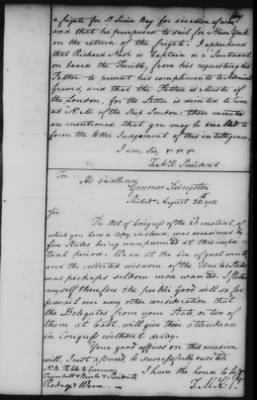 a frigate for St Lucia Bay for
and that he proposed to sail for New York
on the return of the frigate. I apprehend
that Richard Nash is Captain or a Lieutenant
on board the Thisbe, from his requesting his
Father to present his compliments to Admiral
Graves, and that the Father is Master of
the London, for the Letter is directed to him
as R. M. of the Ship London: these
are mentioned that you may be able to
form the better Judgement of this intelligence.
I am, Sir,
T. M:K. President
To
His Excellency
Governor Livingston
Philada August 24th
Sir,
The Act of Congress of the 23d instant, of
which you have a copy inclosed, was occasioned by
five States being unrepresented at this impor-
tant period. We are at the Eve of great events,
and the collected wisdom of the United States
was perhaps seldom more wanted. I flatter
myself therefore the public Good will so far
prevail over every other consideration that
the Delegates from your State, or two of
them at least, will give their attendance
in Congress without delay.
Your good offices on this occasion
will, I rest assured, be successfully exerted.
I have the honor to be
T. M:K. P.